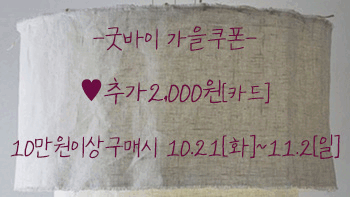 -굿바이 가을쿠폰-
♥추가2,000원[카드]
10만원이상구매시 10.21[화]~11.2[일]